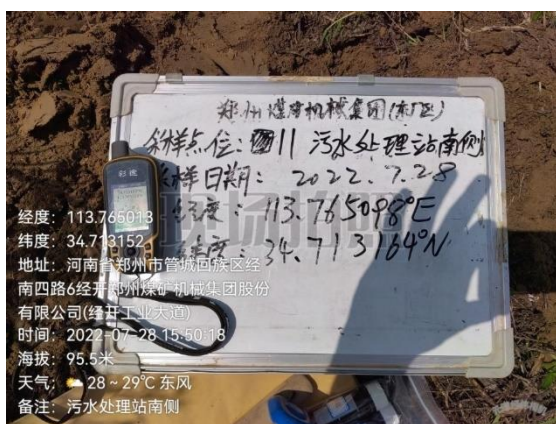 郑州煤矿机械集团(东厂区)
采样点位: 11 污水处理站南侧
采样日期: 2022.7.28
经度: 113.765098°E
纬度: 34.713164°N
彩途
现场拍照
经度: 113.765013
纬度: 34.713152
地址: 河南省郑州市管城回族区经
南四路6经开郑州煤矿机械集团股份
有限公司(经开工业大道)
时间: 2022-07-28 15:50:18
海拔: 95.5米
天气: 28 ~ 29℃ 东风
备注: 污水处理站南侧